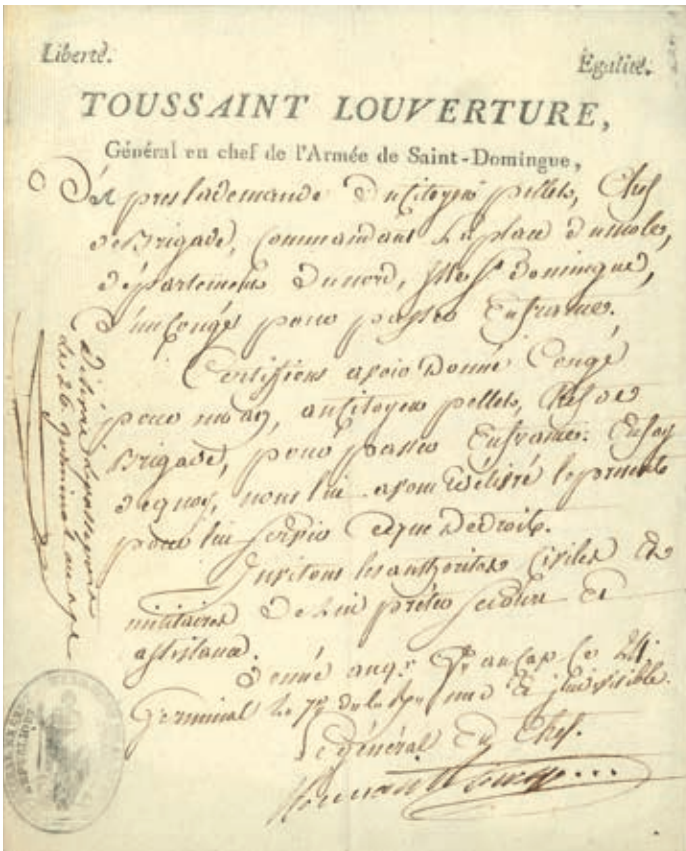 Liberté.
Egalité.
TOUSSAINT LOUVERTURE,
Général en chef de l'Armée de Saint-Domingue,
D'après la demande du Citoyen pellets, Chef
de Brigade, Commandant la place du mole,
département du nord, Domingue,
D'un Congé pour passer En france.
Certifions avoir Donné Congé
pour au Citoyen pellets, Chef de
Brigade, pour passer En france. En foy
de quoy, nous lui avons Délivré le présent
pour lui servir de Droit.
Invitons les authorités Civiles Et
militaires De lui prêter Secours Et
assistance.
Donné au Cap Ce 24.
Germinal de la Rep. une Et indivisible.
Le général En Chef.
Délivré le passeport
Les 26 germinal an 7
REPUBLIQUE